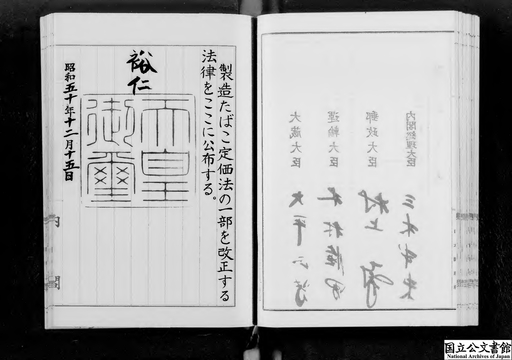 製造たばこ定価法の一部を改正する
法律をここに公布する。
裕仁
天皇
御璽
昭和五十年十二月十五日
内閣
内閣総理大臣
三木武夫
郵政大臣
村上勇
運輸大臣
木村睦男
大蔵大臣
大平正芳
国立公文書館
National Archives of Japan